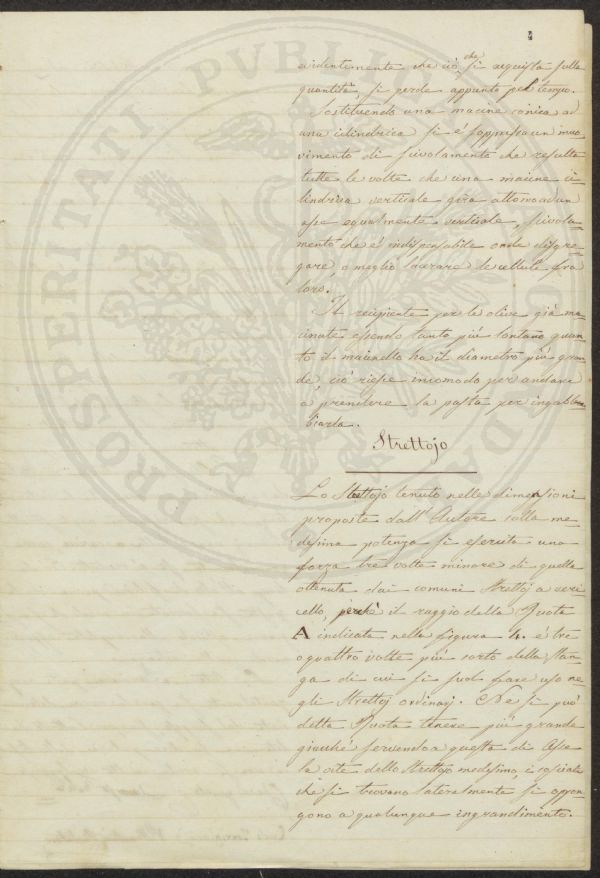 evidentemente che ciò che si acquista sulla
quantità, si perde appunto pel tempo.
Sostituendo una macine conica ad
una cilindrica si è soppresso un mo-
vimento di scivolamento che resulta
tutte le volte che una macine ci-
lindrica verticale gira attorno ad un
asse egualmente verticale, scivola-
mento che è indispensabile onde disgre-
gare, o meglio lacerare le cellule fra
loro.
Il recipiente per le olive già ma-
cinate essendo tanto più lontano quan-
to il macinello ha il diametro più gran-
de, ciò riesce incomodo per andare
a prendere la pasta per ingabb-
biarla.
Strettojo
Lo Strettojo tenuto nelle dimensioni
proposte dall'Autore colla me-
desima potenza si esercita una
forza tre volte minore di quella
ottenuta dai comuni Strettoj a veri-
cello, perchè il raggio della Ruota
A indicata nella figura 4. è tre
o quattro volte più corto della stan-
ga di cui si suol fare uso ne-
gli Strettoj ordinarj. Ne si può
detta Ruota tenere più grande
giacchè servendo a questa di Asse
la vite dello Strettojo medesimo, i cosciali
che si trovano lateralmente si oppon-
gono a qualunque ingrandimento.
PROSPERITATI PVBLICAE